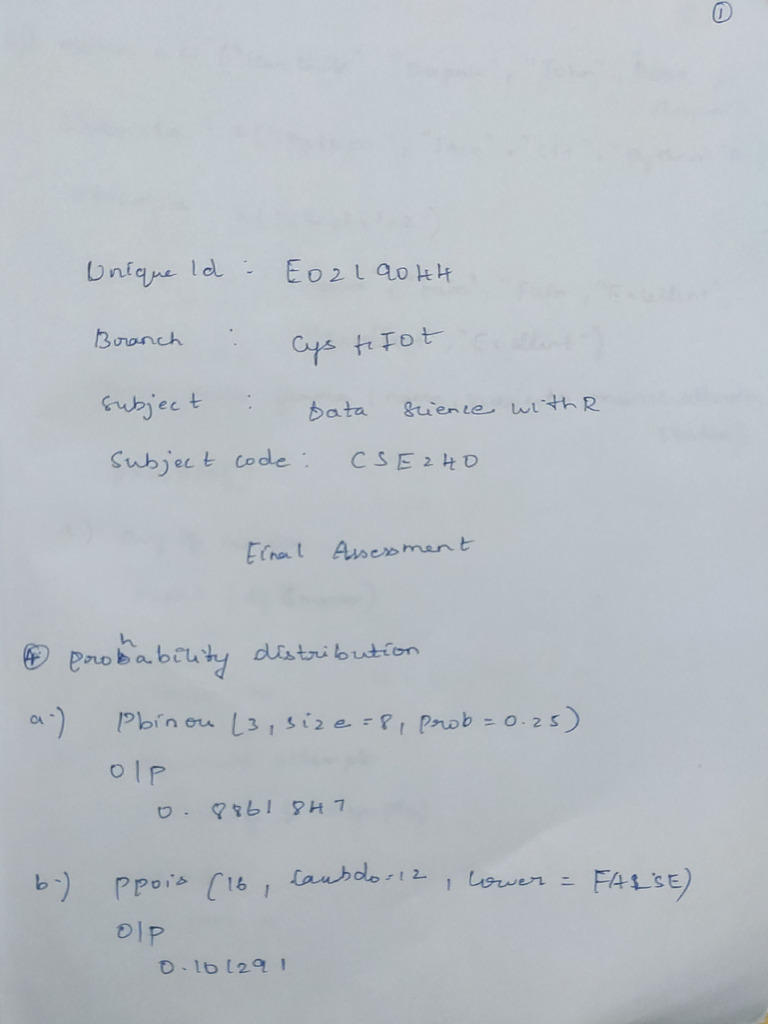 ①
Unique Id : E0219044
Branch : Cys & IOt
Subject : Data Science with R
Subject code : CSE240
Final Assessment
④ probability distribution
a.) Pbinom (3, size = 8, prob = 0.25)
O|P
0.8861847
b.) ppois (16, lambda=12, lower = FALSE)
O|P
0.101291